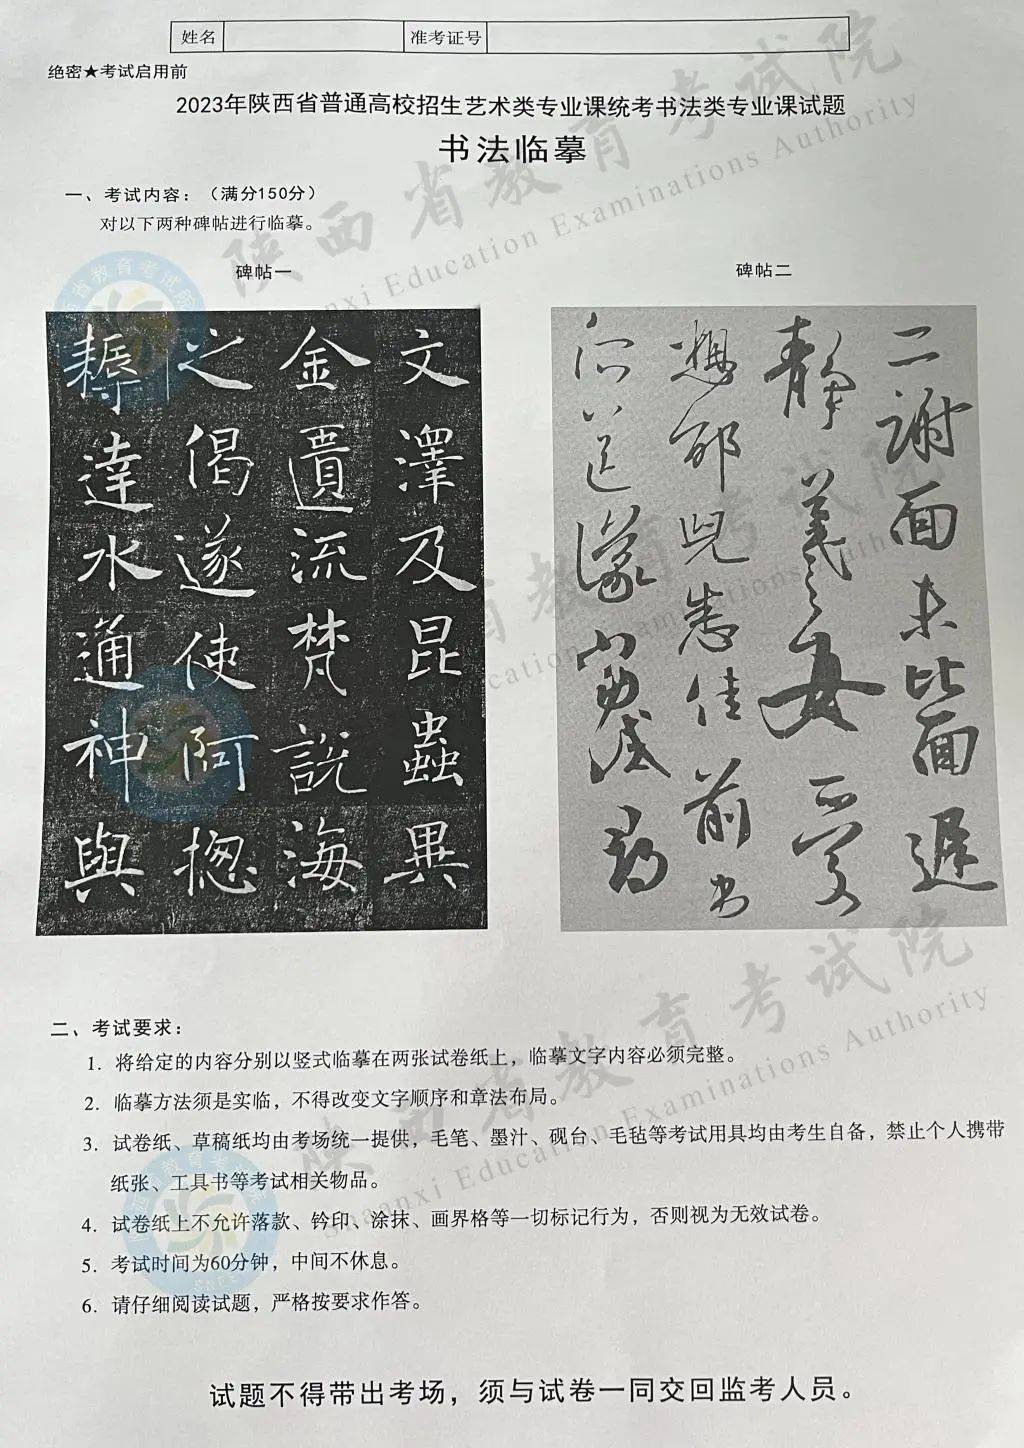 姓名 准考证号
绝密★考试启用前
2023年陕西省普通高校招生艺术类专业课统考书法类专业课试题
书法临摹
一、考试内容：（满分150分）
对以下两种碑帖进行临摹。
碑帖一
文澤及昆蟲異
金遺流梵說海
之偈遂使阿揔
耨達水通神與
碑帖二
二謝面未比面遲
静羲之女愛
想邵兒悉佳前
二、考试要求：
1. 将给定的内容分别以竖式临摹在两张试卷纸上，临摹文字内容必须完整。
2. 临摹方法须是实临，不得改变文字顺序和章法布局。
3. 试卷纸、草稿纸均由考场统一提供，毛笔、墨汁、砚台、毛毡等考试用具均由考生自备，禁止个人携带
纸张、工具书等考试相关物品。
4. 试卷纸上不允许落款、钤印、涂抹、画界格等一切标记行为，否则视为无效试卷。
5. 考试时间为60分钟，中间不休息。
6. 请仔细阅读试题，严格按要求作答。
试题不得带出考场，须与试卷一同交回监考人员。
陕西省教育考试院
Shaanxi Education Examinations Authority